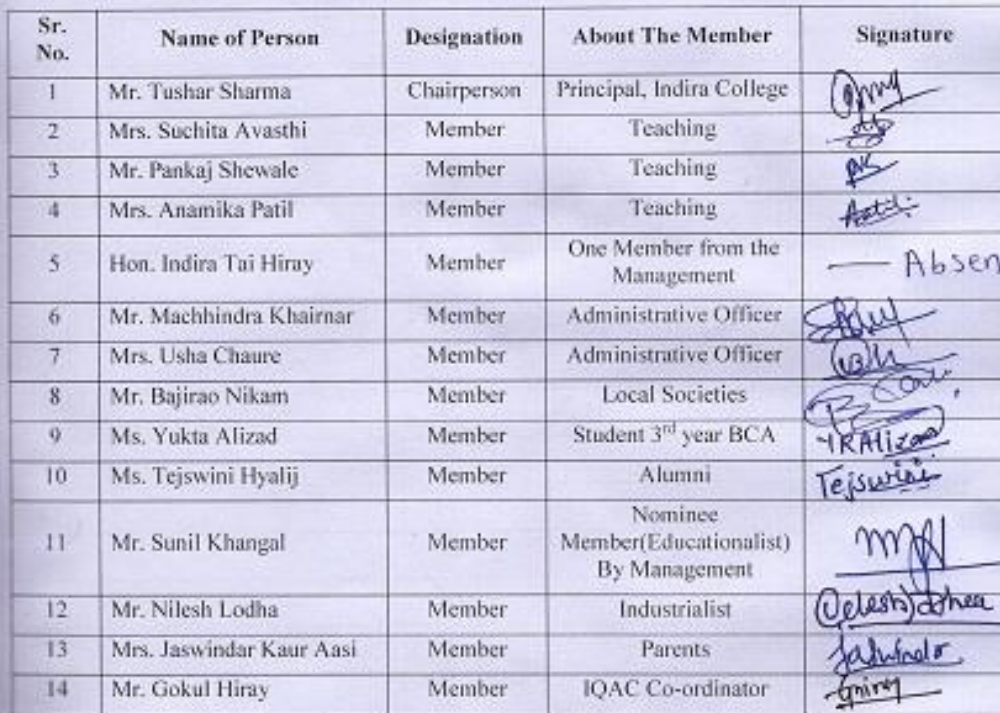 Sr. No. Name of Person Designation About The Member Signature
1 Mr. Tushar Sharma Chairperson Principal, Indira College
2 Mrs. Suchita Avasthi Member Teaching
3 Mr. Pankaj Shewale Member Teaching
4 Mrs. Anamika Patil Member Teaching
5 Hon. Indira Tai Hiray Member One Member from the Management — Absen
6 Mr. Machhindra Khairnar Member Administrative Officer
7 Mrs. Usha Chaure Member Administrative Officer
8 Mr. Bajirao Nikam Member Local Societies
9 Ms. Yukta Alizad Member Student 3rd year BCA YRAlizad
10 Ms. Tejswini Hyalij Member Alumni Tejswini
11 Mr. Sunil Khangal Member Nominee Member(Educationalist) By Management
12 Mr. Nilesh Lodha Member Industrialist
13 Mrs. Jaswindar Kaur Aasi Member Parents
14 Mr. Gokul Hiray Member IQAC Co-ordinator